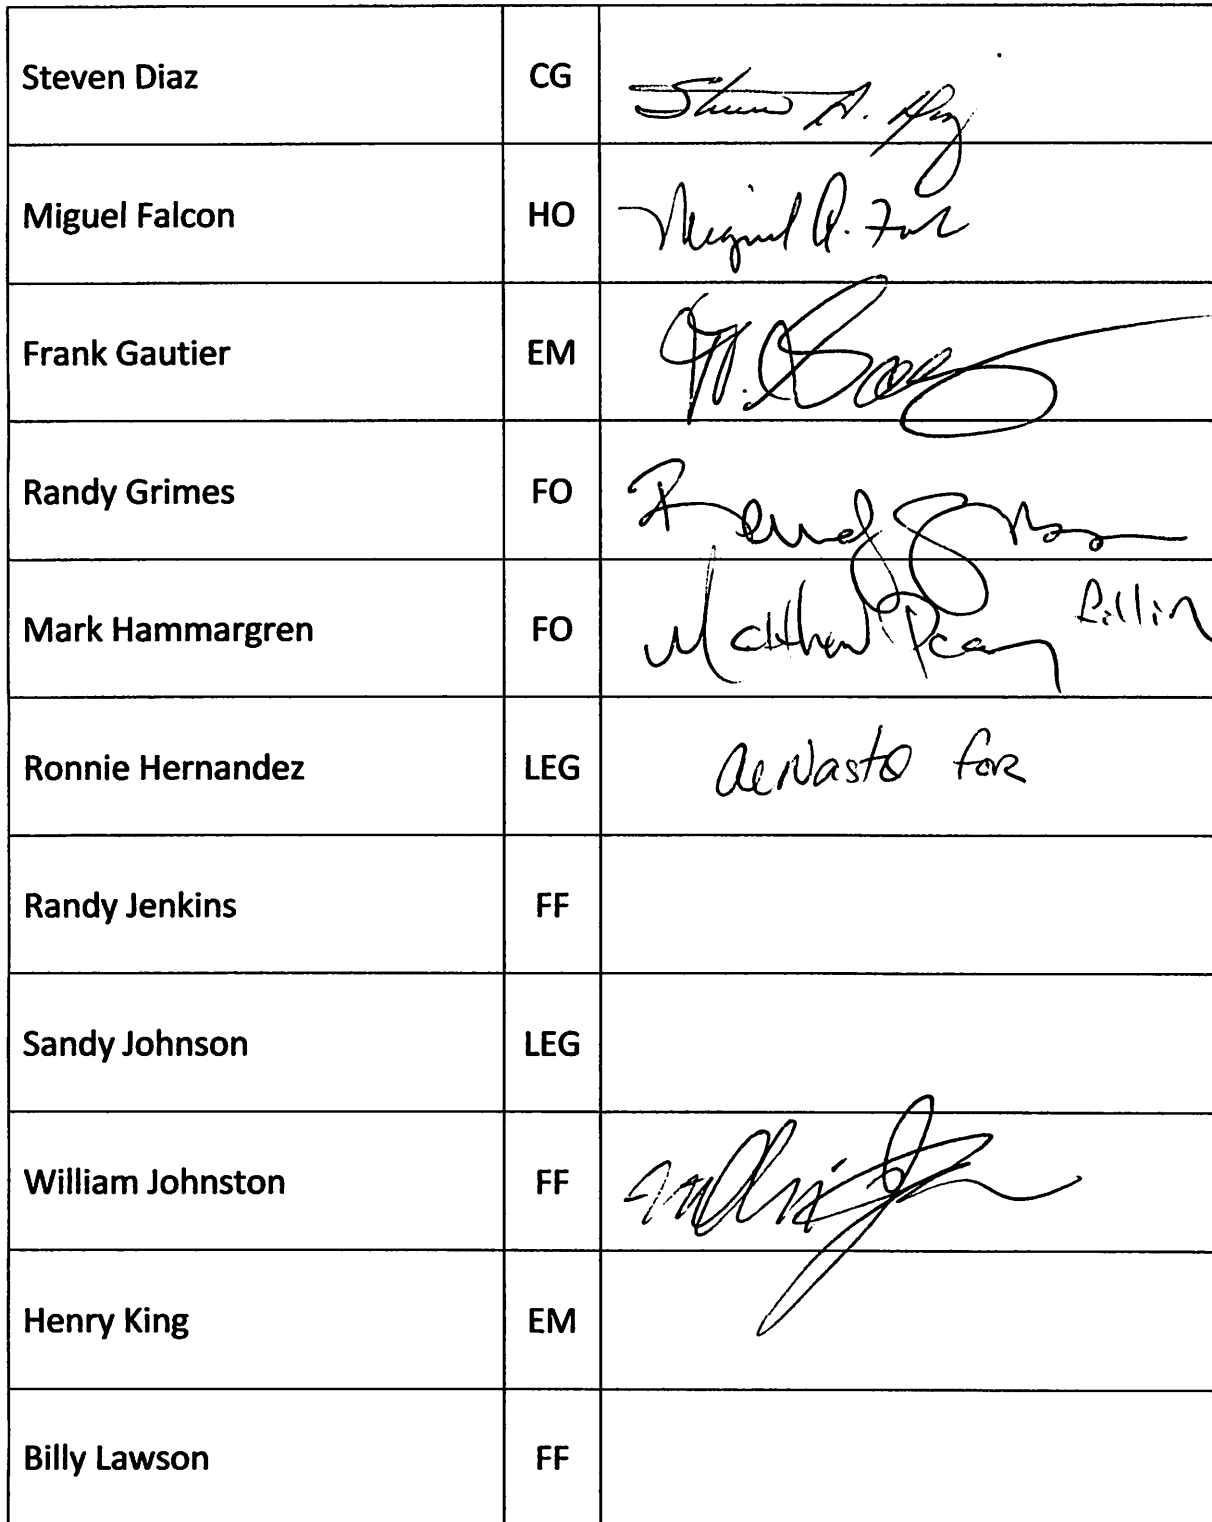 Steven Diaz CG Steven A. Diaz
Miguel Falcon HO Miguel A. Fal
Frank Gautier EM
Randy Grimes FO Randy Grimes
Mark Hammargren FO Matthew Pear fillin
Ronnie Hernandez LEG for
Randy Jenkins FF
Sandy Johnson LEG
William Johnston FF
Henry King EM
Billy Lawson FF